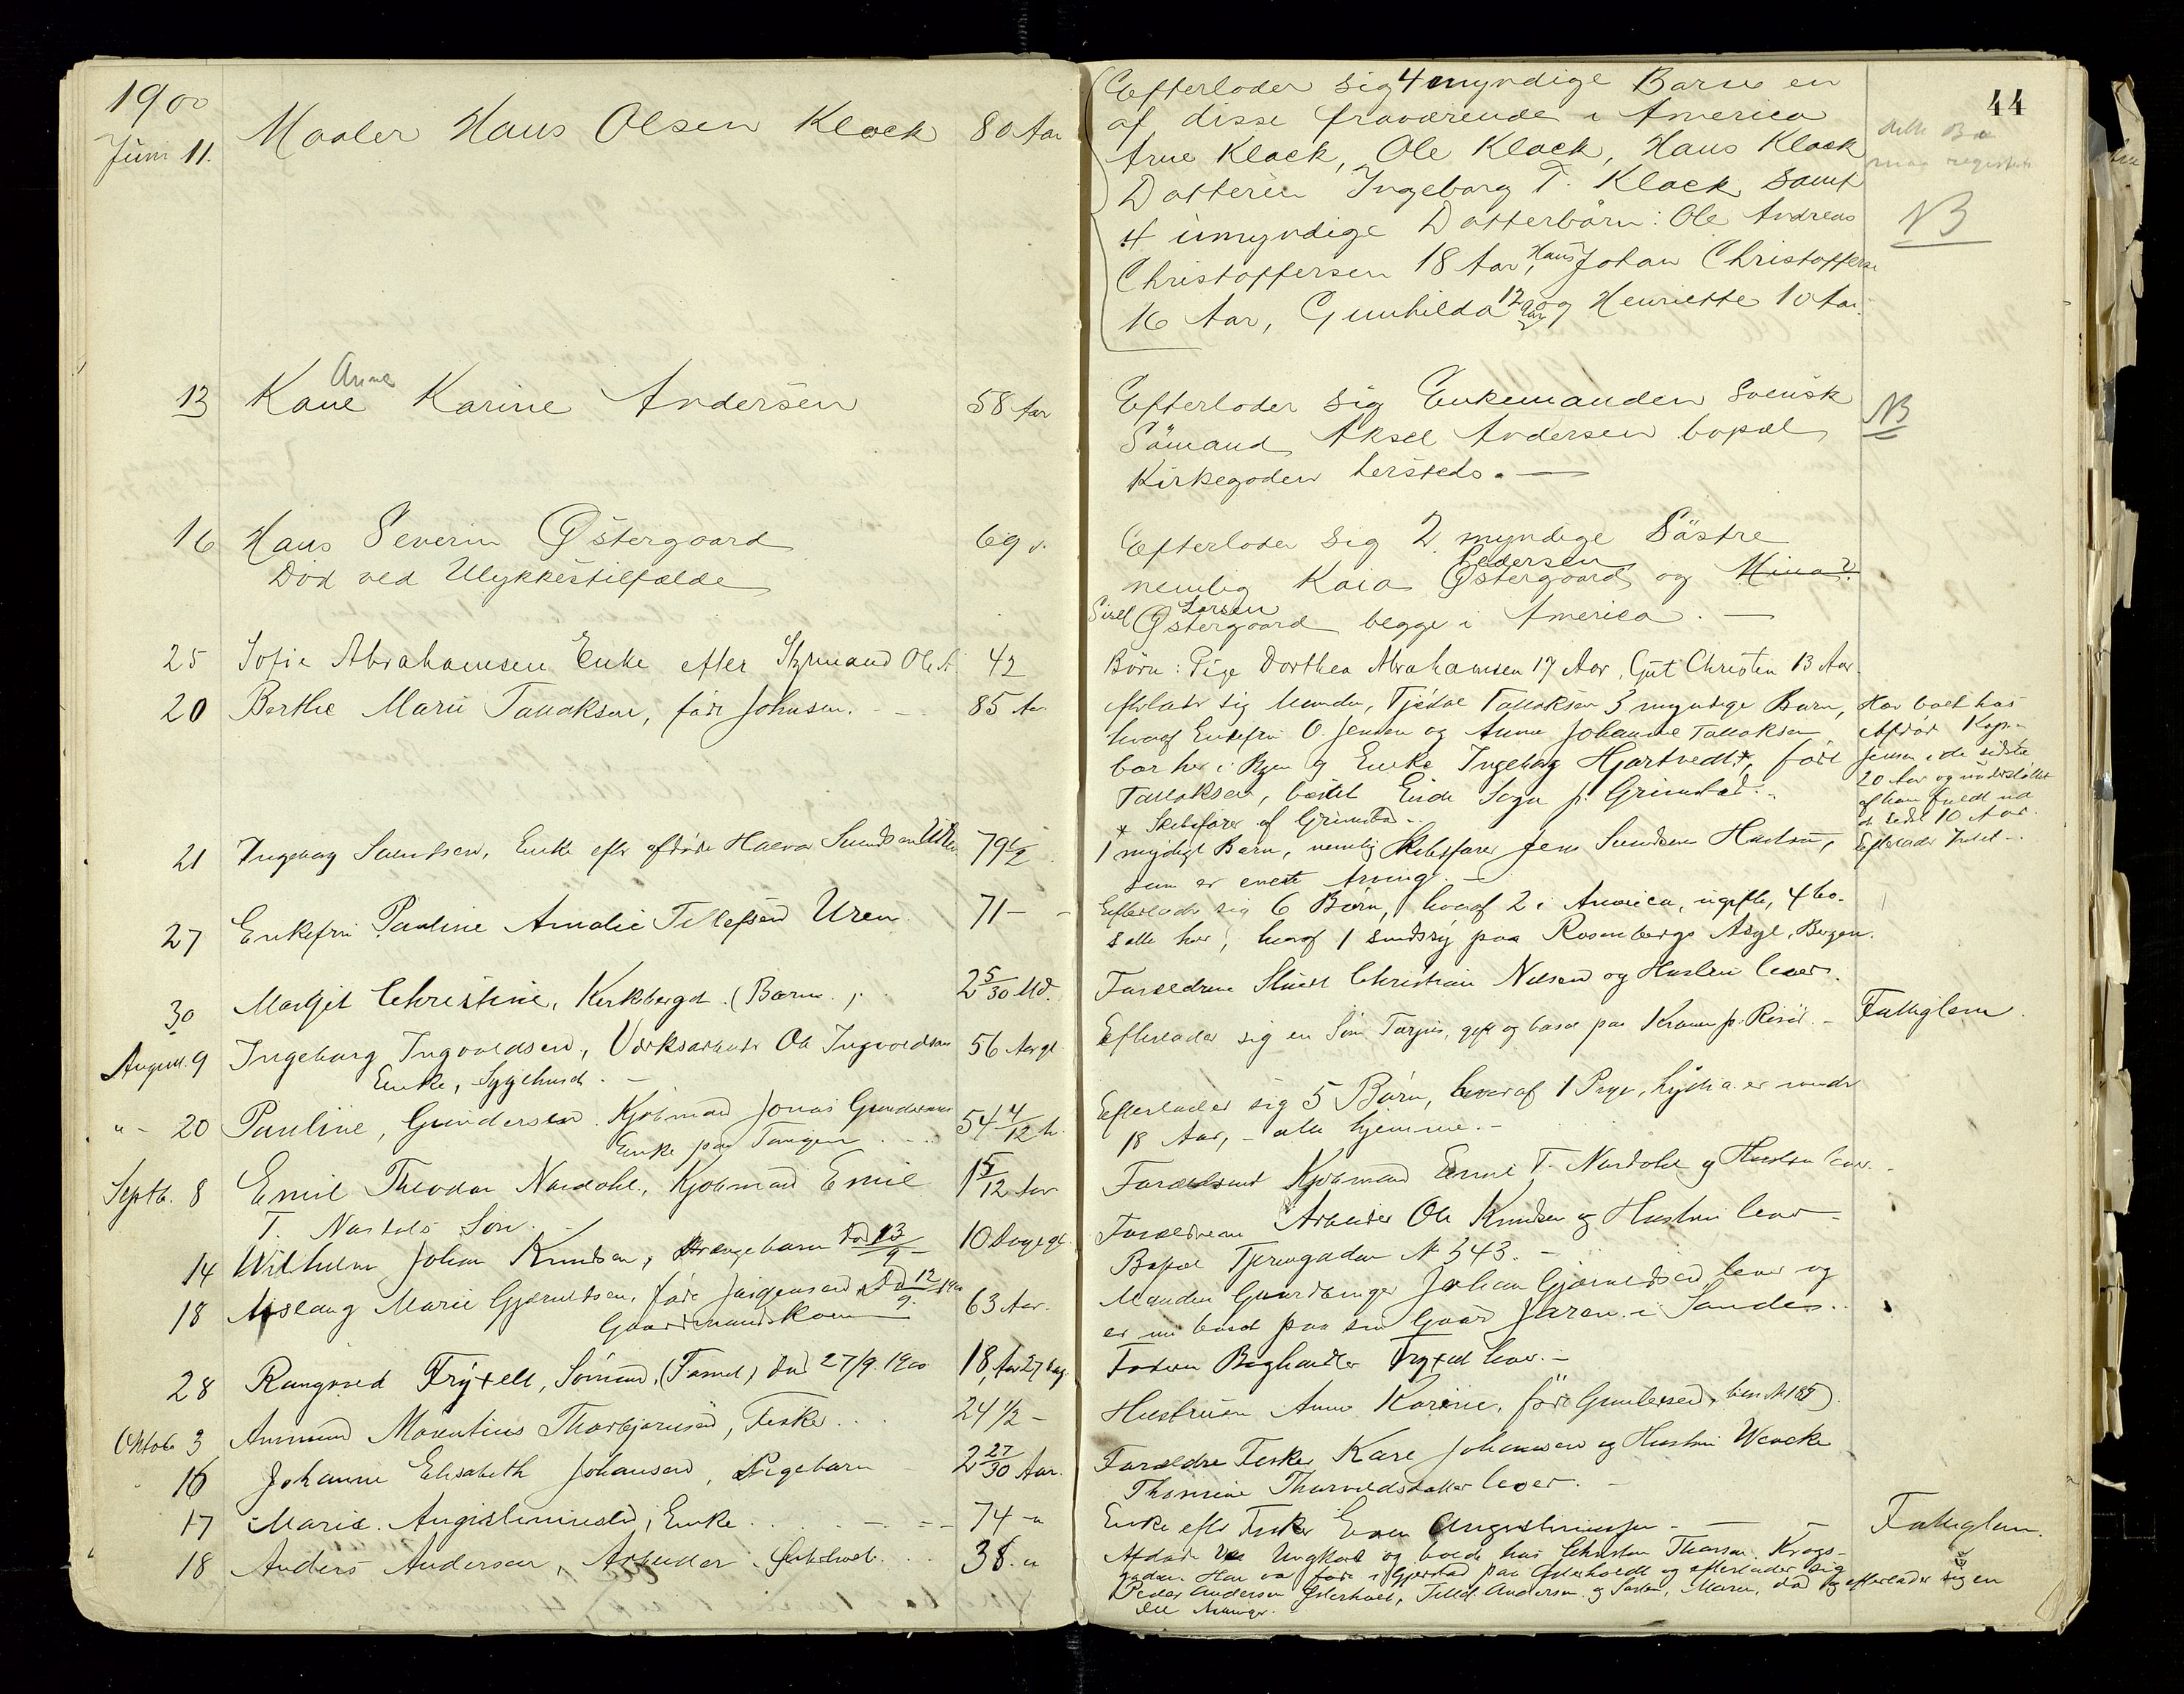 1900
Juni 11. Maaler Hans Olsen Klock 80 Aar
Efterlader sig 4 myndige Barne en
af disse fraværende i America
Arne Klock, Ole Klock, Hans Klock
Datteren Ingeborg T. Klock samt
4 umyndige Datterbörn: Ole Andreas
Christoffersen 18 Aar, Hans Johan Christoffersen
16 Aar, Gunhilda 12 Aar og Henriette 10 Aar.
44
NB
Anne
13 Kone Karine Andersen 58 Aar
Efterlader sig Enkemanden svensk
Sömand Aksel Andersen bopæl
Kirkegaden hersteds. —
NB
16 Hans Severin Østergaard 69
Död ved Ulykkestilfælde
Efterlader sig 2 myndige Søstre
Pedersen
nemlig Kaia Østergaard og Mina?
Sisel Larsen
Østergaard begge i America. —
25 Sofie Abrahamsen Enke efter Styrmand Ole A. 42
Börn: Pige Dorthea Abrahamsen 17 Aar, Gut Christen 13 Aar.
20 Berthe Marie Tallaksen, føde Johnsen. 85 Aar
efterlader sig Manden, Tjödve Tallaksen 3 myndige Barn,
hvoraf Enkefru O. Jensen og Anne Johanne Tallaksen
bor her i Byen og Enke Ingeborg Hjartvedt*, født
Tallaksen, bosat Eide Sogn p. Grimstad.
* Skibsfører af Grimstad
Har boet hos
Afdöd Kap.
Jensen i de sidste
20 Aar og understöttet
af ham fuldt ud
de sidste 10 Aar.
21 Ingeborg Sundsen, Enke efter afdöde Halvor Sundsen 79 1/2
1 myndigt Barn, nemlig Skibsfører Jens Sundsen
som er eneste Arving. —
Efterlader Intet —
27 Enkefru Pauline Amalie Tellefsen Uren 71 —
Efterlader sig 6 Børn, hvoraf 2 i America, ugifte, 4 bo-
satte her, hvoraf 1 sindssyg paa Rosenbergs Asyl, Bergen.
30 Margit Christine, Kirkeberget. (Barn.) 2 5/30 Md.
Forældrene Christian Nilsen og Hustru lever.
August 9 Ingeborg Ingvoldsen, Værksarbeider Ole Ingvoldsen 56 Aar gl.
Enke, Sygehuset. —
Efterlader sig en Søn Torjus, gift og bosat paa Kranen p. Risør. —
Fattiglem.
" - 20 Pauline, Gundersen. Kjøbmand Jonas Gundersens 54 4/12
Enke paa Tangen
Efterlader sig 5 Børn, hvoraf 1 Pige, Lydia er under
18 Aar, — alle hjemme. —
Septb. 8 Emil Theodor Nardahl, Kjøbmand Emil 1 5/12 Aar
T. Nardahls Søn.
Forældrene Kjøbmand Emil T. Nardahl og Hustru lever.
14 Wilhelm Johan Knudsen, Drengebarn död 13/9 — 10 Dage gl.
Forældrene Arbeider Ole Knudsen og Hustru lever —
Bopæl Tjerngaden No 343. —
18 Aslaug Marie Gjeruldsen, føde Jørgensen, död 12/9 1900 63 Aar.
Gaardmandskone
Manden Gaardbruger Johan Gjeruldsen lever og
er nu bosat paa sin Gaard Jaren i Sandes.
28 Rangvald Fryxell, Sömand, död 27/9. 1900 18 Aar 27 Dage
Faderen Boghandler Fryxell lever. —
Oktobr 3 Ammund Morentius Thorbjørnsen, Fisker 24 1/2 —
Hustruen Anne Karine, född Gundersen, hus No 185).
16 Johanne Elisabeth Johansen, Pigebarn 2 27/30 Aar.
Forældre Fisker Karl Johannesen og Hustru Wencke
Thomine Thorvaldsdatter lever. —
17 Marie Augistinussen, Enke 74 — "
Enke efter Fisker Even Augustinussen. —
Fattiglem.
18 Anders Andersen, Arbeider Østerholt 38. "
Afdøde var Ungkarl og boede hos Christen Thorsen Krags-
gaden. Han var født i Gjerstad paa Østerholt og efterlader sig
Peder Andersen Østerholt, Tellef Andersen og Søsteren, Maren, död og efterlader sig en
Del Arvinger.